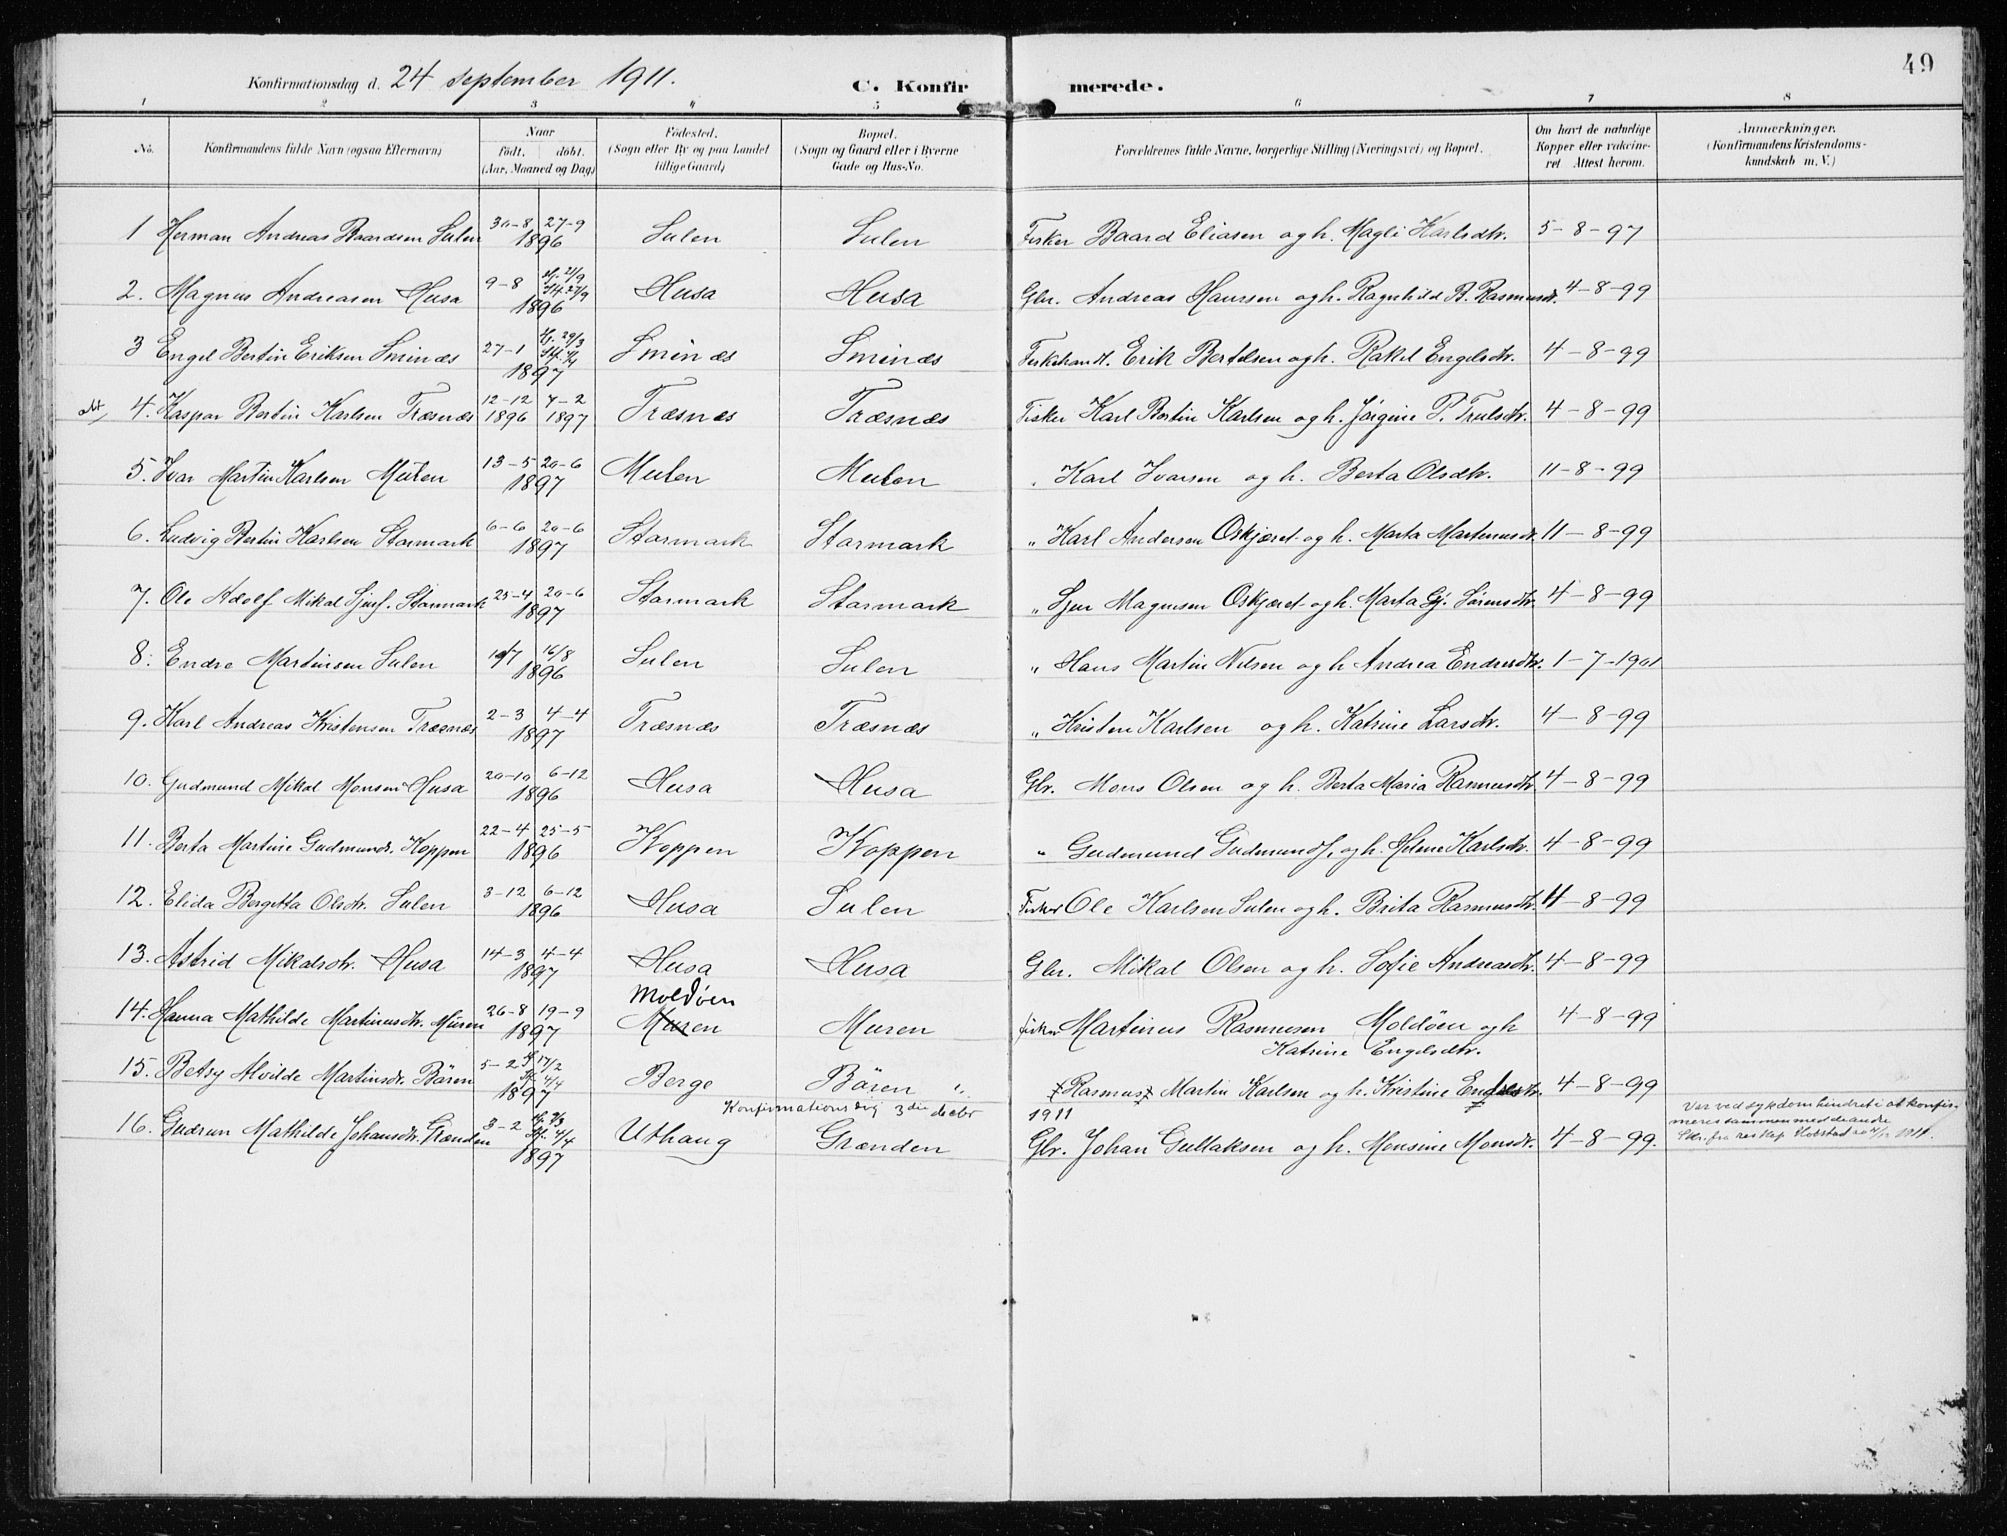 49
Konfirmationsdag d. 24 september 1911. C. Konfirmerede.
1 2 3 4 5 6 7 8
No. Konfirmandens fulde Navn (ogsaa Efternavn) Naar født, døbt. (Aar, Maaned og Dag) Fødested. (Sogn eller By og paa Landet tillige Gaard) Bopæl. (Sogn og Gaard eller i Byerne Gade og Hus-No. Forældrenes fulde Navne, borgerlige Stilling (Næringsvei) og Bopæl. Om havt de naturlige Kopper eller vakcineret Attest herom. Anmærkninger. (Konfirmandens Kristendomskundskab m. V.)
1 Herman Andreas Baardsen Sulen 30-8 27-9 1896 Sulen Sulen Fisker Baard Eliasen og h. Magli Karlsdtr. 5-8-97
2. Magnus Andreasen Husa 9-8 Hj. 21/9 St. 27/9 1896 Husa Husa Gbr. Andreas Hanssen og h. Ragnhild B. Rasmusdr. 4-8-99
3 Engel Bertin Eriksen Sminæs 27-1 Hj. 29/3 St. 4/4 1897 Sminæs Sminæs Fiskehandl. Erik Bertelsen og h. Rakel Engelsdtr. 4-8-99
abt, 4. Kaspar Bertin Karlsen Træsnæs 12-12 1896 7-2 1897 Træsnæs Træsnæs Fisker Karl Bertin Karlsen og h. Jørgine P. Trulsdtr. 4-8-99
5. Ivar Martin Karlsen Mulen 13-5 20-6 1897 Mulen Mulen " Karl Ivarsen og h. Berta Olsdtr. 11-8-99
6. Ludvig Bertin Karlsen Starmark 6-6 20-6 1897 Starmark Starmark " Karl Andersen Oskjæret og h. Marta Martinusdr. 11-8-99
7. Ole Adolf Mikal Sjurs. Starmark 25-4 20-6 1897 Starmark Starmark " Sjur Magnusen Oskjæret og h. Marta Gj. Sørensdtr. 4-8-99
8. Endre Martinsen Sulen 19/7 16/8 1896 Sulen Sulen " Hans Martin Nilsen og h Andrea Endresdtr. 1-7-1901
9. Karl Andreas Kristensen Træsnæs 2-3 4-4 1897 Træsnæs Træsnæs " Kristen Karlsen og h. Katrine Larsdtr. 4-8-99
10. Gudmund Mikal Monsen Husa 20-10 6-12 1896 Husa Husa Gbr. Mons Olsen og h. Berta Maria Rasmusdtr. 4-8-99
11. Berta Martine Gudmundr. Koppen 22-4 25-5 1896 Koppen Koppen " Gudmund Gudmunds. og h. Helene Karlsdtr. 4-8-99
12. Elida Bergetta Olsdtr. Sulen 3-12 6-12 1896 Husa Sulen Fisker Ole Karlsen Sulen og h. Brita Rasmusdtr. 11-8-99
13. Astrid Mikalsdtr. Husa 14-3 4-4 1897 Husa Husa Gbr. Mikal Olsen og h. Sofie Andreasdtr. 4-8-99
14. Hanna Mathilde Martinusdtr. Muren 26-8 19-9 1897 Moldøen Muren Muren fisker Martinus Rasmusen Moldöen og h Katrine Engelsdtr. 4-8-99
15. Betsy Alvilde Martinsdr. Bören 5-2 17/2 4/4 1897 Berge Bören " Rasmus Martin Karlsen og h. Kristine Endresdtr. 4-8-99
Konfirmationsdag 3die decbr 1911
16. Gudrun Mathilde Johansdtr. Grænden 3-2 Hj. 7/3 St. 4/4 1897 Uthaug Grænden Gbr. Johan Gullaksen og h. Monsine Monsdr. 4-8-99. Var ved sykdom hindret i at konfirmeres sammen med de andre
Skr. fra res kap. 4/12 1911.